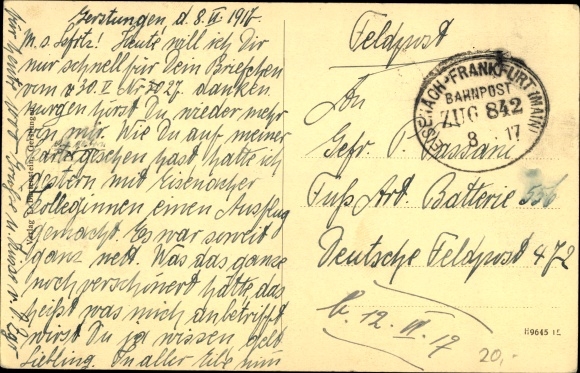 Gerstungen d. 8. VI 1917.
M. s. Heute will ich Dir
nur schnell für Dein Briefchen
vom v 30. V Nr. 27. danken.
morgen hörst Du wieder mehr
von mir. Wie Du auf meiner
Karte gesehen hast hatte ich
gestern mit Eisenacher
Colleginnen einen Ausflug
gemacht. Es war soweit
ganz nett. Was das ganze
noch verschönert hätte, das
heißt was mich anbetrifft
wirst Du ja wissen, gelt
Liebling. In aller
Feldpost
EISENACH-FRANKFURT (MAIN)
BAHNPOST
ZUG 842
8 17
An
Gefr. P. Passani
Fuß Art. Batterie 556
Deutsche Feldpost 472
b. 12. VI. 17
H9645 15
20,-
Verlag Gerstungen